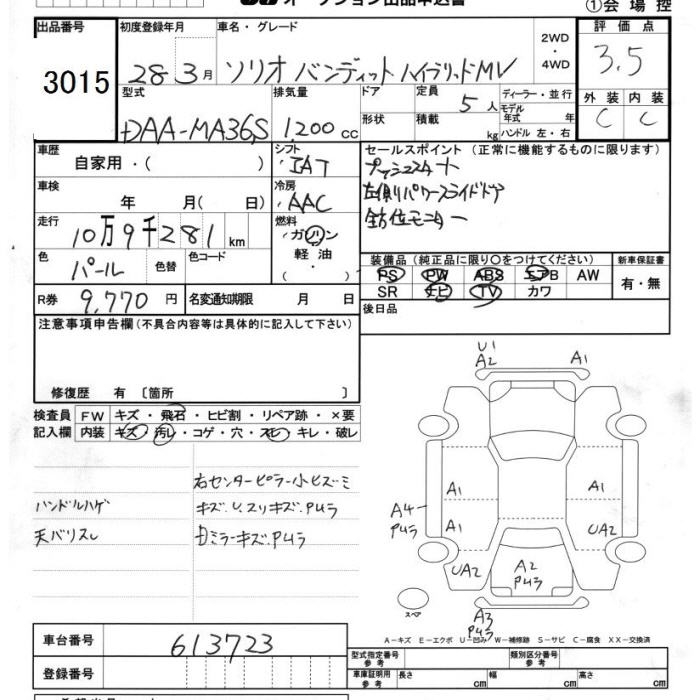 オークション出品申込書
①会場控
出品番号
3015
初度登録年月
28 3月
車名・グレード
ソリオ バンディット ハイブリッドMV
2WD
・
4WD
評価点
3.5
型式
DAA-MA36S
排気量
1,200 cc
ドア
形状
定員
5人
積載
kg
ディーラー・並行
モデル
年式 年
ハンドル 左・右
外装
C
内装
C
車歴
自家用・( )
シフト
IAT
セールスポイント (正常に機能するものに限ります)
プッシュスタート
左側パワースライドドア
全方位モニター
車検
年 月( 日)
冷房
AAC
走行
10万9千281km
燃料
ガソリン
・
軽油
・
( )
色
パール
色替
色コード
装備品 (純正品に限り○をつけてください)
PS PW ABS エアB AW
SR ナビ TV カワ
新車保証書
有・無
R券
9,770円
名変通知期限 月 日
後日品
注意事項申告欄(不具合内容等は具体的に記入して下さい)
修復歴 有 〔箇所 〕
検査員
記入欄
FW キズ・飛石・ヒビ割・リペア跡・×要
内装 キズ・汚レ・コゲ・穴・スレ・キレ・破レ
右センターピラー小ヒズミ
ハンドルハゲ
キズ、U、スリキズ、Pムラ
天バリスレ
ミラーキズ、Pムラ
U1
A2
A1
A1
A1
A4
Pムラ
A1
UA2
UA2
A2
Pムラ
A3
Pムラ
スペア
A－キズ E－エクボ U－凹み W－補修跡 S－サビ C－腐食 XX－交換済
車台番号
613723
登録番号
型式指定番号
参考
類別区分番号
参考
車庫証明用
参考
長さ cm
幅 cm
高さ cm